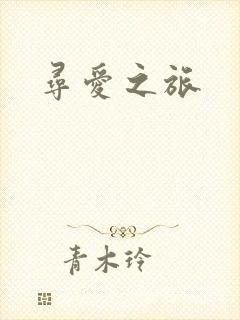 尋愛之旅
青木玲